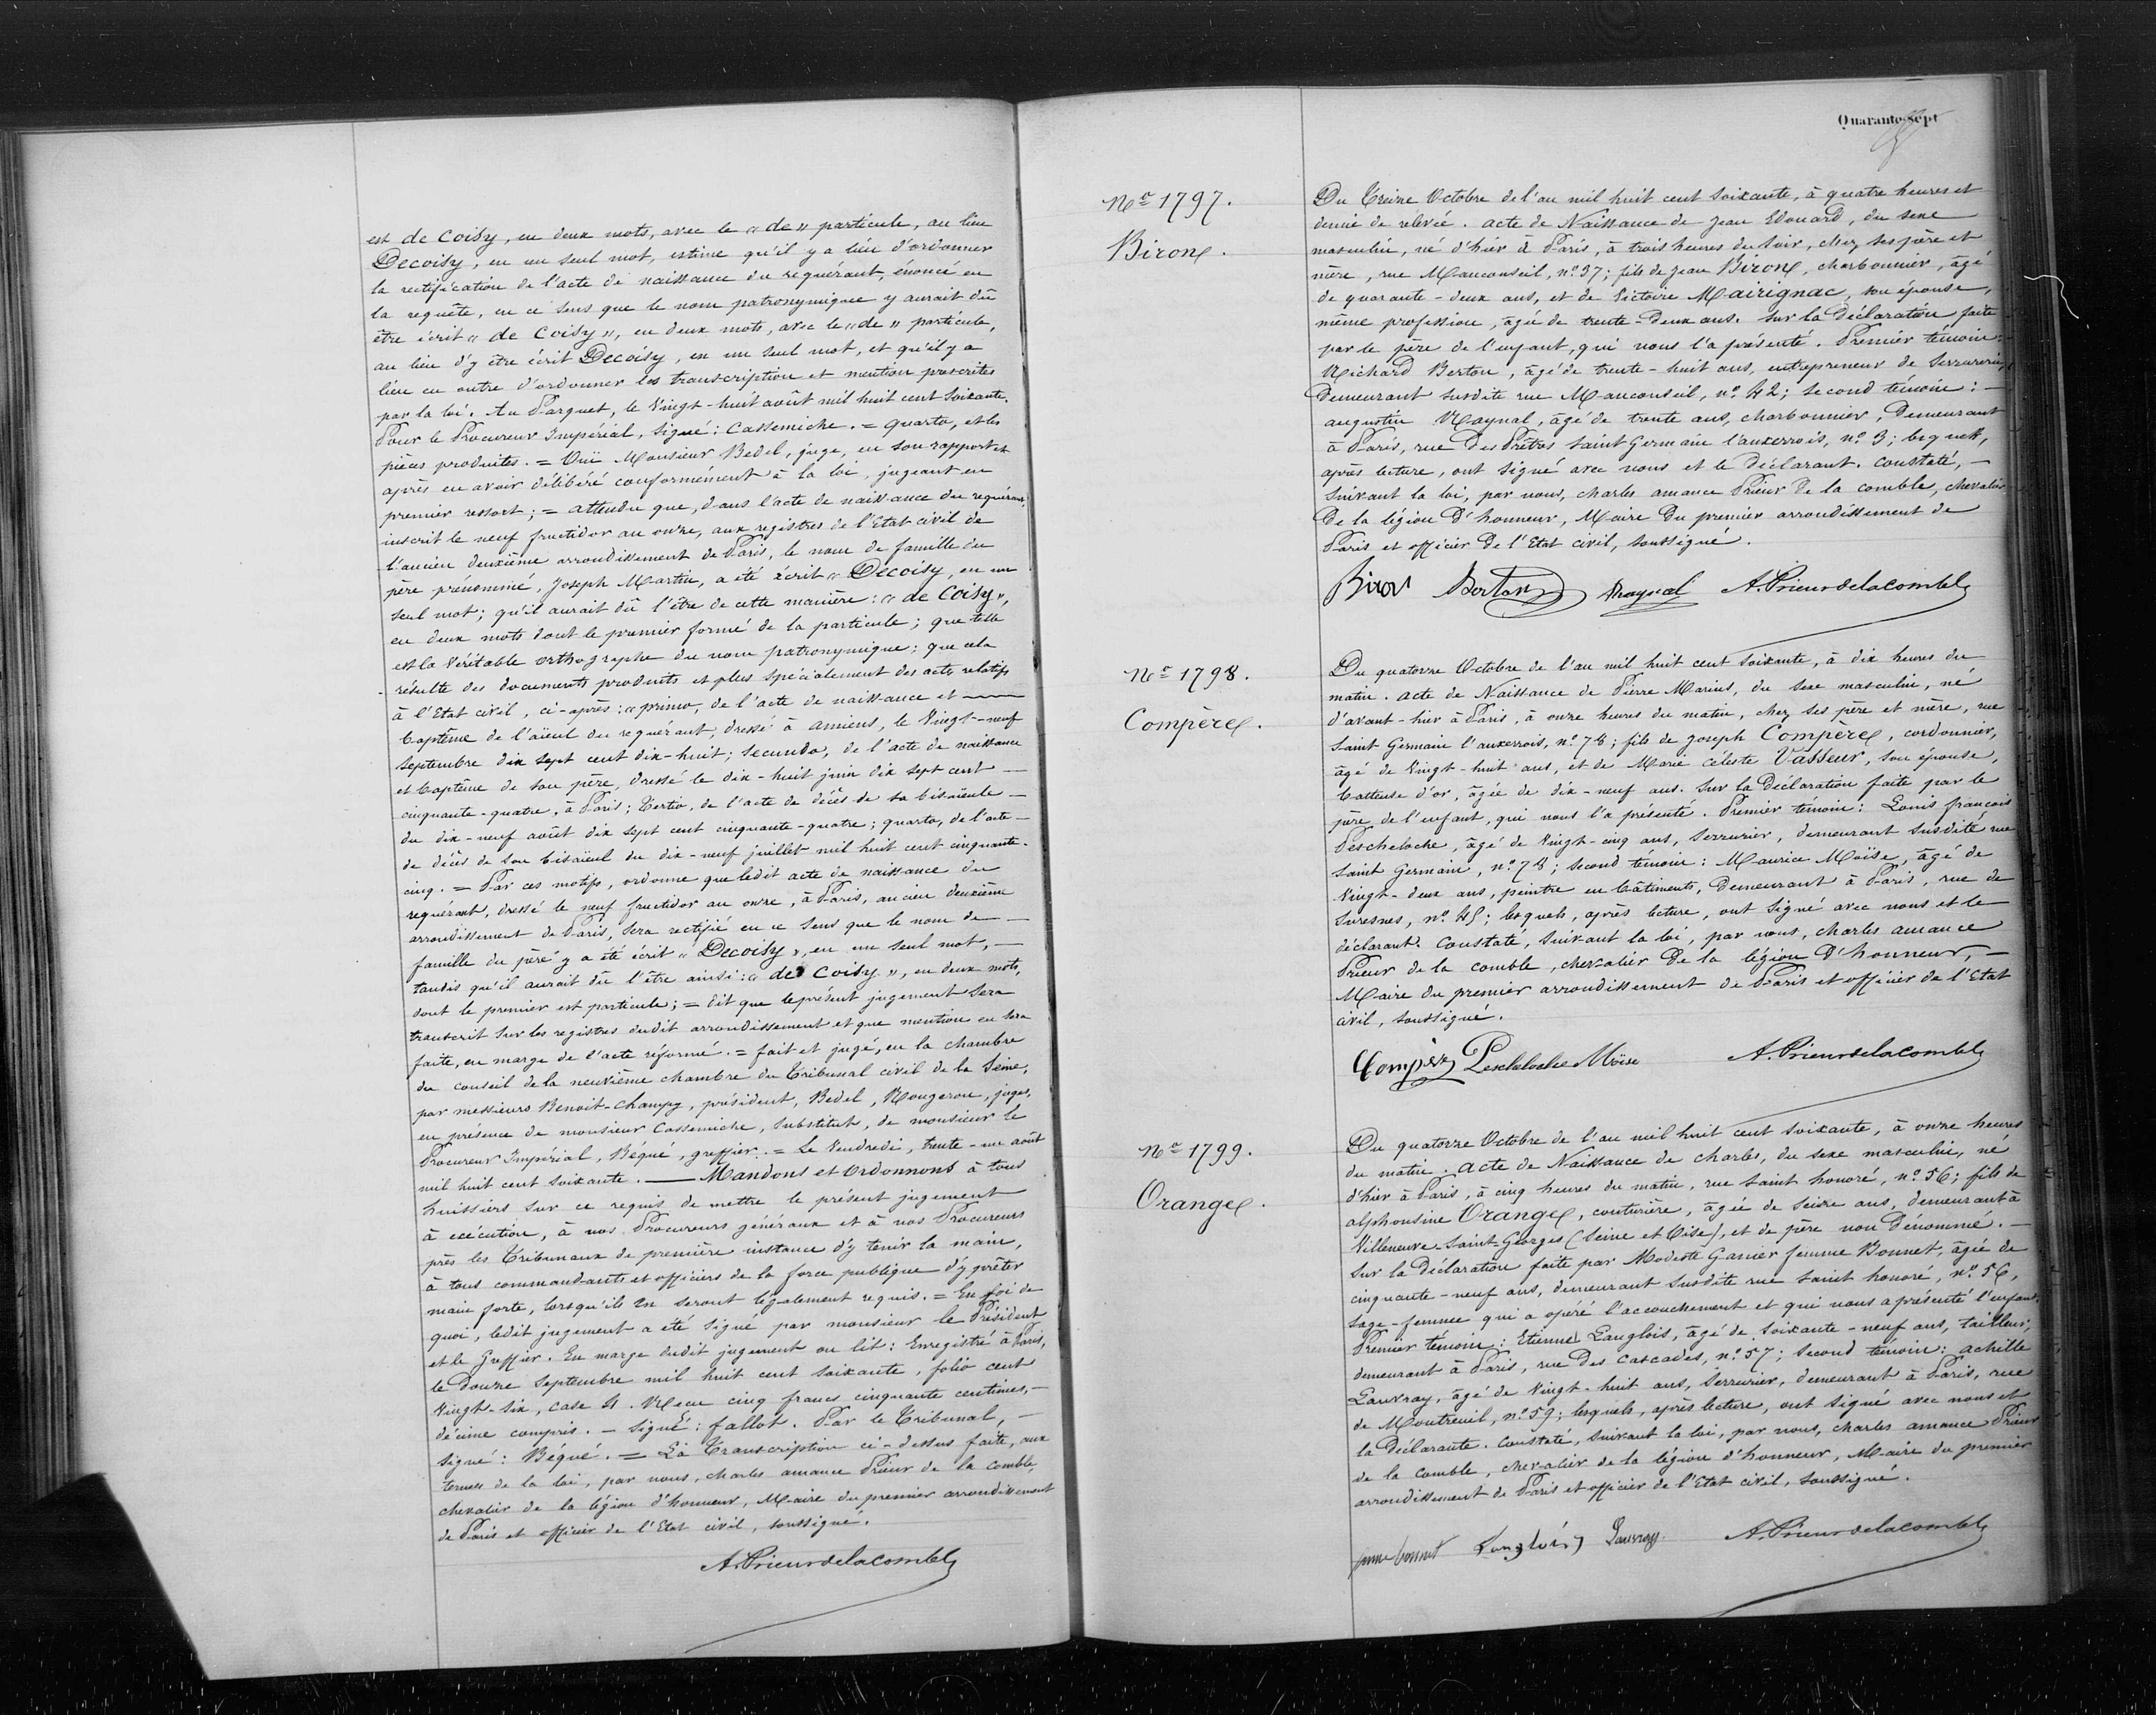 est de Coisy, en deux mots, avec le « de » particule, au lieu
Decoisy, en un seul mot, estime qu'il y a lieu d'ordonner
la rectification de l'acte de naissance du requérant, énoncé en
la requête, en ce sens que le nom patronymique y aurait dû
être écrit « de Coisy », en deux mots, avec le « de » particule,
au lieu d'y être écrit Decoisy, en un seul mot, et qu'il y a
lieu en outre d'ordonner les transcription et mention prescrites
par la loi. Au Parquet, le Vingt-huit août mil huit cent soixante.
Pour le Procureur Impérial, signé : Cassemiche. = quarto, et les
pièces produites. = Ouï Monsieur Bedel, juge, en son rapport et
après en avoir délibéré conformément à la loi, jugeant en
premier ressort ; = attendu que, dans l'acte de naissance du requérant,
inscrit le neuf fructidor an onze, aux registres de l'Etat civil de
l'ancien deuxième arrondissement de Paris, le nom de famille du
père prénommé, Joseph Martin, a été écrit « Decoisy, en un
seul mot ; qu'il aurait dû l'être de cette manière : « de Coisy »,
en deux mots dont le premier formé de la particule ; que telle
est la véritable orthographe du nom patronymique ; que cela
résulte des documents produits et plus spécialement des actes relatifs
à l'Etat civil, ci-après : « primo, de l'acte de naissance et
baptême de l'aïeul du requérant, dressé à amiens, le Vingt-neuf
septembre dix sept cent dix-huit ; secundo, de l'acte de naissance
et baptême de son père, dressé le dix-huit juin dix sept cent
cinquante-quatre, à Paris ; tertio, de l'acte de décès de sa bisaïeule
du dix-neuf août dix sept cent cinquante-quatre ; quarto, de l'acte
de décès de son bisaïeul du dix-neuf juillet mil huit cent cinquante-
cinq. = Par ces motifs, ordonne que ledit acte de naissance du
requérant, dressé le neuf fructidor an onze, à Paris, ancien deuxième
arrondissement de Paris, sera rectifié en ce sens que le nom de
famille du père y a été écrit « Decoisy », en un seul mot,
tandis qu'il aurait dû l'être ainsi : « de Coisy », en deux mots,
dont le premier est particule ; = dit que le présent jugement sera
transcrit sur les registres dudit arrondissement et que mention en sera
faite, en marge de l'acte réformé. = fait et jugé, en la chambre
du conseil de la neuvième chambre du Tribunal civil de la Seine,
par messieurs Benoit-Champy, président, Bedel, Rougeron, juges,
en présence de monsieur Cassemiche, substitut, de monsieur le
Procureur Impérial, Béqué, greffier. = Le Vendredi, trente-un août
mil huit cent soixante. — Mandons et Ordonnons à tous
huissiers sur ce requis de mettre le présent jugement
à exécution, à nos Procureurs généraux et à nos Procureurs
près les Tribunaux de première instance d'y tenir la main,
à tous commandants et officiers de la force publique d'y prêter
main forte, lorsqu'ils en seront légalement requis. = En foi de
quoi, ledit jugement a été signé par monsieur le Président
et le Greffier. En marge dudit jugement on lit : Enregistré à Paris,
le douze septembre mil huit cent soixante, folio cent
Vingt-six, case 4. Reçu cinq francs cinquante centimes,
décime compris. — signé : fallot. Par le Tribunal,
signé : Béqué. = La Transcription ci-dessus faite, aux
termes de la loi, par nous, charles amance Prieur de la comble,
chevalier de la légion d'honneur, Maire du premier arrondissement
de Paris et officier de l'Etat civil, soussigné.
A. Prieur de la Comble
Quarante-sept
No 1797.
Biron.
Du treize Octobre de l'an mil huit cent soixante, à quatre heures et
demie de relevée. acte de Naissance de Jean Edouard, du sexe
masculin, né d'hier à Paris, à trois heures du soir, chez ses père et
mère, rue Mauconseil, no 37 ; fils de Jean Biron, charbonnier, âgé
de quarante-deux ans, et de Victoire Mairignac, son épouse,
même profession, âgée de trente-deux ans. sur la déclaration faite
par le père de l'enfant, qui nous l'a présenté. Premier témoin :
Richard Berton, âgé de trente-huit ans, entrepreneur de serrurerie,
demeurant susdite rue Mauconseil, no 42 ; second témoin :
augustin Raynal, âgé de trente ans, charbonnier, demeurant
à Paris, rue des Prêtres saint Germain l'auxerrois, no 3 ; lesquels,
après lecture, ont signé avec nous et le déclarant. constaté,
suivant la loi, par nous, charles amance Prieur de la comble, chevalier
de la légion d'honneur, Maire du premier arrondissement de
Paris et officier de l'Etat civil, soussigné.
Biron Berton Raynal A. Prieur de la Comble
No 1798.
Compère.
Du quatorze Octobre de l'an mil huit cent soixante, à dix heures du
matin. acte de Naissance de Pierre Marius, du sexe masculin, né
d'avant-hier à Paris, à onze heures du matin, chez ses père et mère, rue
Saint Germain l'auxerrois, no 78 ; fils de Joseph Compère, cordonnier,
âgé de Vingt-huit ans, et de Marie céleste Vasseur, son épouse,
batteuse d'or, âgée de dix-neuf ans. sur la déclaration faite par le
père de l'enfant, qui nous l'a présenté. Premier témoin : Louis françois
Pescheloche, âgé de Vingt-cinq ans, serrurier, demeurant susdite rue
Saint Germain, no 78 ; second témoin : Maurice Moïse, âgé de
Vingt-deux ans, peintre en bâtiments, demeurant à Paris, rue de
Suresnes, no 45 ; lesquels, après lecture, ont signé avec nous et le
déclarant. Constaté, suivant la loi, par nous, charles amance
Prieur de la comble, chevalier de la légion d'honneur,
Maire du premier arrondissement de Paris et officier de l'Etat
civil, soussigné.
Compère Pescheloche Moïse A. Prieur de la Comble
No 1799.
Orange.
Du quatorze Octobre de l'an mil huit cent soixante, à onze heures
du matin. Acte de Naissance de charles, du sexe masculin, né
d'hier à Paris, à cinq heures du matin, rue saint honoré, no 56 ; fils de
alphonsine Orange, couturière, âgée de seize ans, demeurant à
Villeneuve-Saint-Georges (Seine et Oise), et de père non dénommé.
Sur la déclaration faite par Modeste Garnier femme Bonnet, âgée de
cinquante-neuf ans, demeurant susdite rue saint honoré, no 56,
sage-femme qui a opéré l'accouchement et qui nous a présenté l'enfant.
Premier témoin : Etienne Langlois, âgé de soixante-neuf ans, tailleur,
demeurant à Paris, rue des Cascades, no 57 ; second témoin : achille
Lauvray, âgé de Vingt-huit ans, serrurier, demeurant à Paris, rue
de Montreuil, no 59 ; lesquels, après lecture, ont signé avec nous et
la déclarante. Constaté, suivant la loi, par nous, charles amance Prieur
de la comble, chevalier de la légion d'honneur, Maire du premier
arrondissement de Paris et officier de l'Etat civil, soussigné.
femme bonnet Langlois Lauvray A. Prieur de la Comble